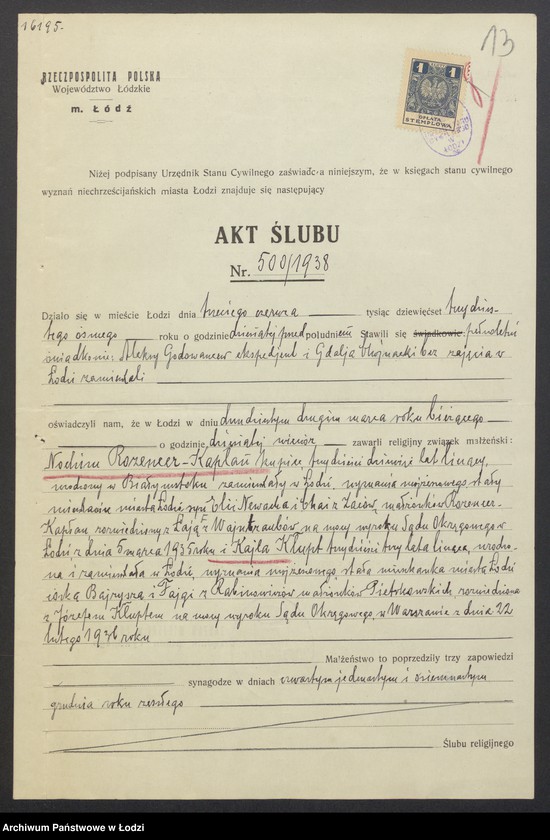 16195.
13
RZECZPOSPOLITA POLSKA
Województwo Łódzkie
m. Łódź
1 1
OPŁATA
STEMPLOWA
Niżej podpisany Urzędnik Stanu Cywilnego zaświadcza niniejszym, że w księgach stanu cywilnego
wyznań niechrześcijańskich miasta Łodzi znajduje się następujący
AKT ŚLUBU
Nr. 500/1938
Działo się w mieście Łodzi dnia trzeciego czerwca tysiąc dziewięćset trzydzies-
tego ósmego roku o godzinie dziesiątej przed południem Stawili się świadkowie: pełnoletni
świadkowie: Aleksy Godowancew ekspedjent i Gdalja Wojnacki bez zajęcia w
Łodzi zamieszkali
oświadczyli nam, że w Łodzi w dniu dwudziestym drugim marca roku bieżącego
o godzinie dziesiątej wieczór zawarli religijny związek małżeński:
Nochim Rozencer-Kapłan kupiec, trzydzieści dziewięć lat liczący,
urodzony w Białymstoku zamieszkały w Łodzi, wyznania mojżeszowego stały
mieszkaniec miasta Łodzi syn Elii Newacha i Chai z Zaców, małżonków Rozencer-
Kapłan rozwiedziony z Łają z Wajntraubów, na mocy wyroku Sądu Okręgowego w
Łodzi z dnia 5 marca 1935 roku i Kajla Kłupt trzydzieści trzy lata licząca, urodzo-
na i zamieszkała w Łodzi, wyznania mojżeszowego stała mieszkanka miasta Łodzi
córka Bajrysza i Fajgi z Rabinowiczów małżonków Piotrkowskich, rozwiedziona
z Józefem Kłuptem na mocy wyroku Sądu Okręgowego, w Warszawie z dnia 22
lutego 1936 roku
Małżeństwo to poprzedziły trzy zapowiedzi
synagodze w dniach czwartym jedenastym i osiemnastym
grudnia roku zeszłego
Ślubu religijnego
Archiwum Państwowe w Łodzi